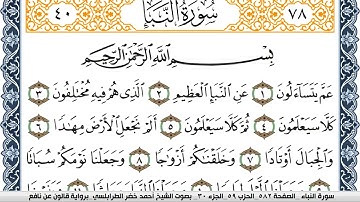 ٧٨ سُورَةُ النَّبَإِ ٤٠
بِسْمِ اللَّهِ الرَّحْمَٰنِ الرَّحِيمِ
عَمَّ يَتَسَآءَلُونَ ١ عَنِ النَّبَإِ الْعَظِيمِ ٢ الَّذِى هُمْ فِيهِ مُخْتَلِفُونَ ٣
كَلَّا سَيَعْلَمُونَ ٤ ثُمَّ كَلَّا سَيَعْلَمُونَ ٥ أَلَمْ نَجْعَلِ الْأَرْضَ مِهَٰدًا ٦
وَالْجِبَالَ أَوْتَادًا ٧ وَخَلَقْنَٰكُمْ أَزْوَٰجًا ٨ وَجَعَلْنَا نَوْمَكُمْ سُبَاتًا
سورة النباء . الصفحة ٥٨٢ الحزب ٥٩ . الجزء ٣٠ . بصوت الشيخ أحمد خضر الطرابلسي . برواية قالون عن نافع